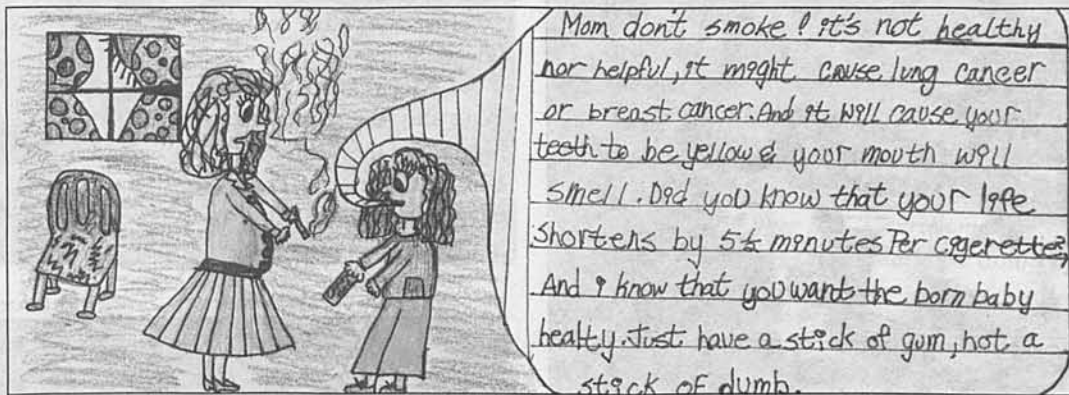 Mom don't smoke! it's not healthy
nor helpful, it might cause lung cancer
or breast cancer. And it will cause your
teeth to be yellow & your mouth will
smell. Did you know that your life
shortens by 5½ minutes Per cigerette?,
And i know that you want the born baby
healty. Just have a stick of gum, not a
stick of dumb.